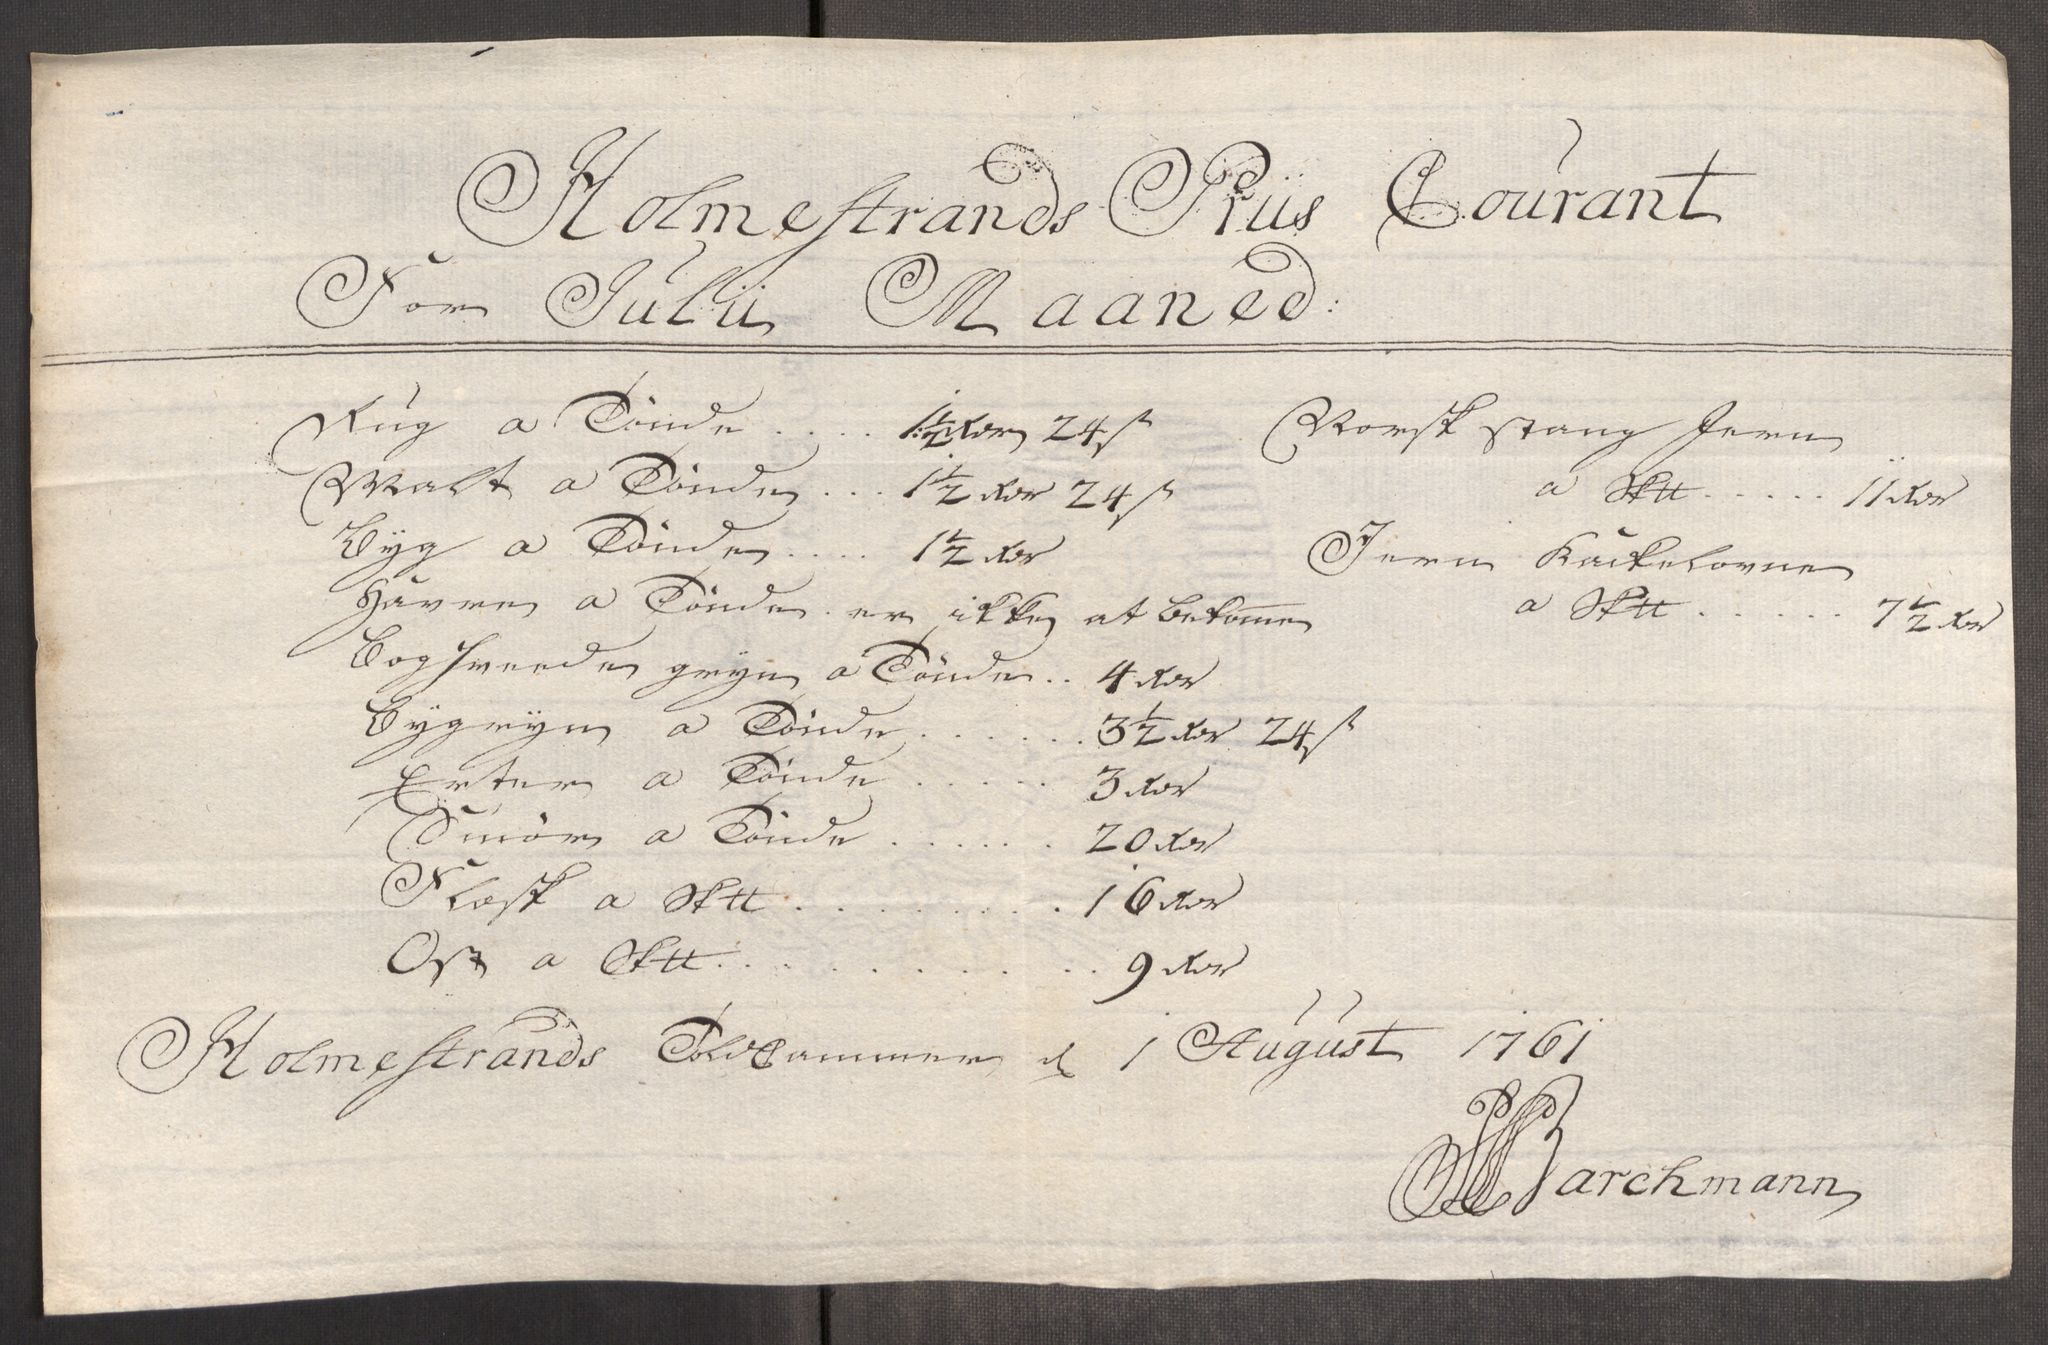 Holmestrands Priis Courant
For Julii Maaned:
Rug a Tønde .... 1½ Rdr 24 s
Malt a Tønde ... 1½ Rdr 24 s
Byg a Tønde .... 1½ Rdr
Havre a Tønde . er ikke at bekomme
Boghvede gryn a Tønde .. 4 Rdr
Bygryn a Tønde ...... 3½ Rdr 24 s
Erter a Tønde ..... 3 Rdr
Smør a Tønde ...... 20 Rdr
Flæsk a S℔ ......... 16 Rdr
Ost a S℔ .......... 9 Rdr
Norsk stang Jern
a S℔ ..... 11 Rdr
Jern Kackelovne
a S℔ ...... 7½ Rdr
Holmestrands Toldkammer d 1 August 1761
Barchmann